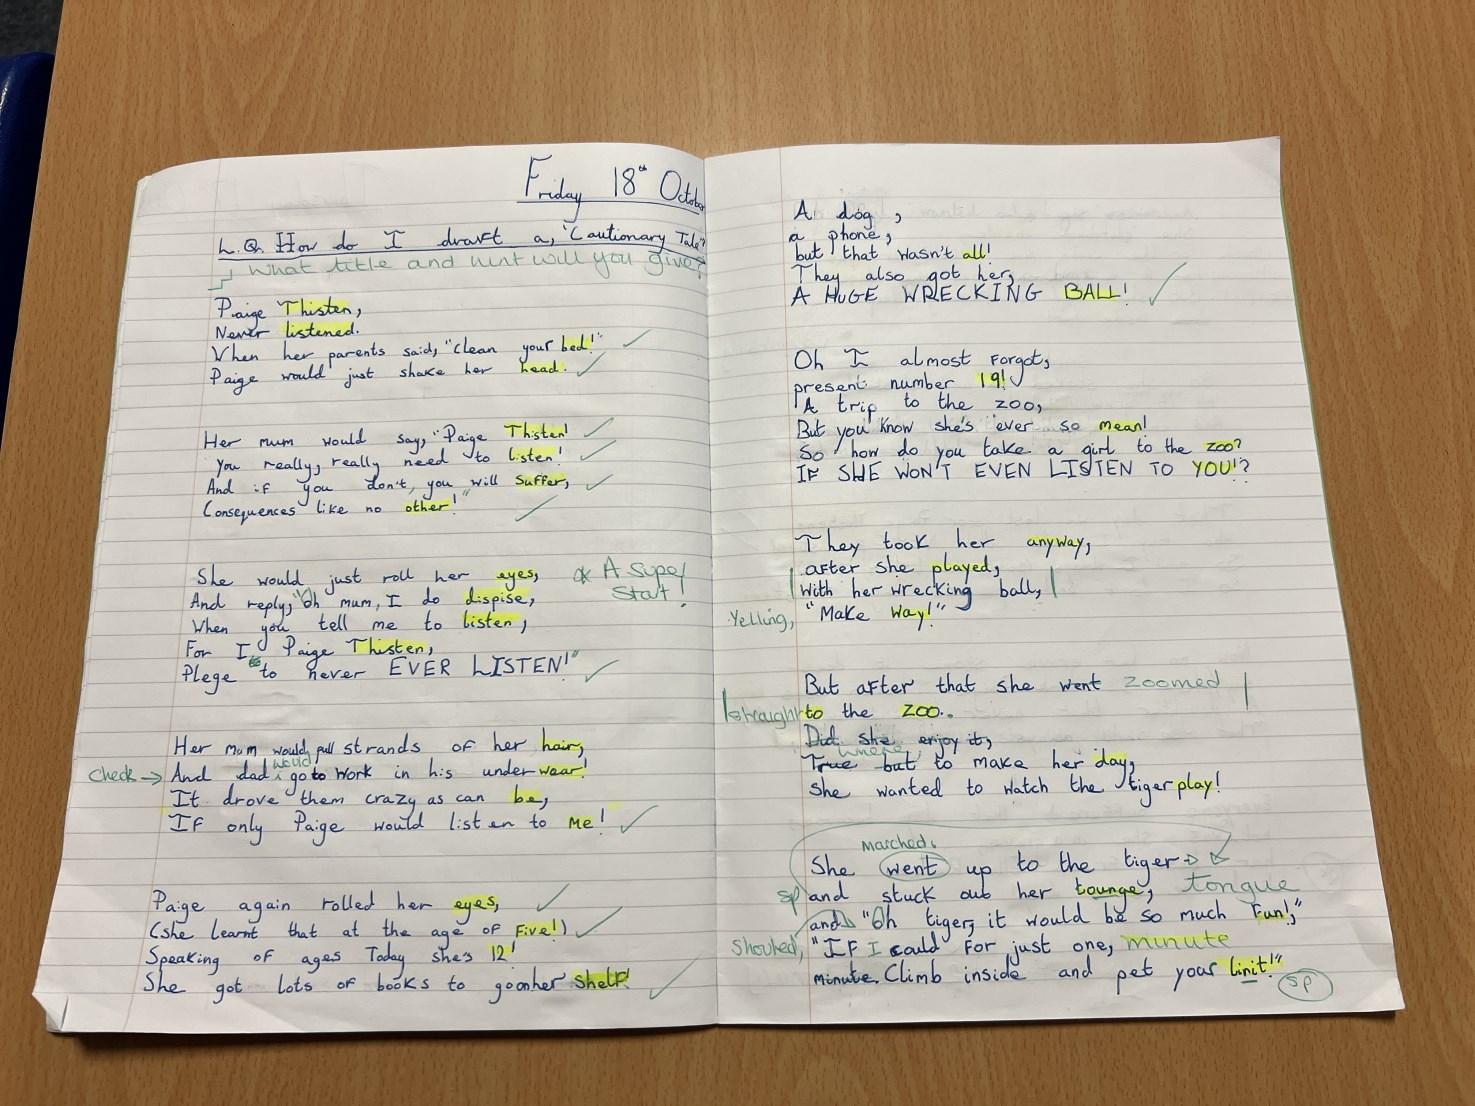 Friday 18th October
L.Q. How do I draft a, "Cautionary Tale"
What title and hint will you give?
Paige Thisten,
Never listened.
When her parents said, "Clean your bed!"
Paige would just shake her head.
Her mum would say, "Paige Thisten!
You really, really need to listen!
And if you don't, you will suffer,
Consequences like no other!"
She would just roll her eyes,
* A super start!
And reply, "Oh mum, I do dispise,
When you tell me to listen,
For I, Paige Thisten,
Plege to never EVER LISTEN!"
Her mum would pull strands of her hair,
would
Check → And dad go to work in his underwear!
It drove them crazy as can be,
If only Paige would listen to me!
Paige again rolled her eyes,
(she learnt that at the age of five!)
Speaking of ages Today shes 12!
She got lots of books to go on her shelf!
A dog,
a phone,
but that wasn't all!
They also got her,
A HUGE WRECKING BALL!
Oh I almost forgot,
present number 19!
A trip to the zoo,
But you know she's ever so mean!
So how do you take a girl to the zoo?
IF SHE WON'T EVEN LISTEN TO YOU!?
They took her anyway,
after she played,
with her wrecking ball,
Yelling, "Make way!"
But after that she went zoomed
straight to the zoo..
Did she enjoy it,
where
True but to make her day,
She wanted to watch the tiger play!
marched.
She went up to the tiger
sp and stuck out her tounge, tongue
and "Oh tiger, it would be so much fun!,"
Shouted, "If I could for just one, minute
minute. Climb inside and pet your linit!"
sp